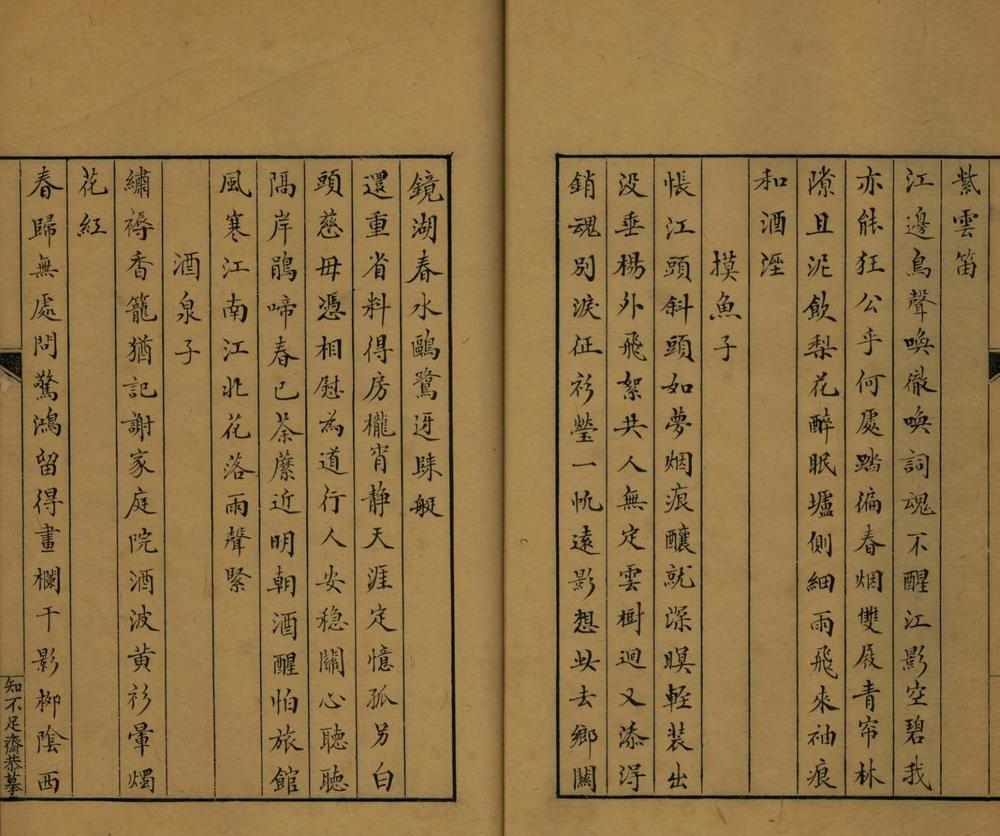 紫雲笛
江邊鳥聲喚徹喚詞魂不醒江影空碧我
亦能狂公乎何處踏徧春烟雙屐青帘林
隙且泥飲梨花醉眠壚側細雨飛來袖痕
和酒溼
摸魚子
悵江頭斜頭如夢烟痕釀就深暝輕装出
没垂楊外飛絮共人無定雲樹迴又添淂
銷魂别淚征衫瑩一帆遠影想此去鄉關
鏡湖春水鷗鷺迓歸艇
還重省料得房櫳宵静天涯定憶孤另白
頭慈母憑相慰為道行人安穏關心聽聽
隔岸鵑啼春已荼蘼近明朝酒醒怕旅館
風寒江南江北花落雨聲緊
酒泉子
繡褥香籠猶記謝家庭院酒波黄衫暈燭
花紅
春歸無處問驚鴻留得畫欄干影柳陰西
知不足齋恭摹